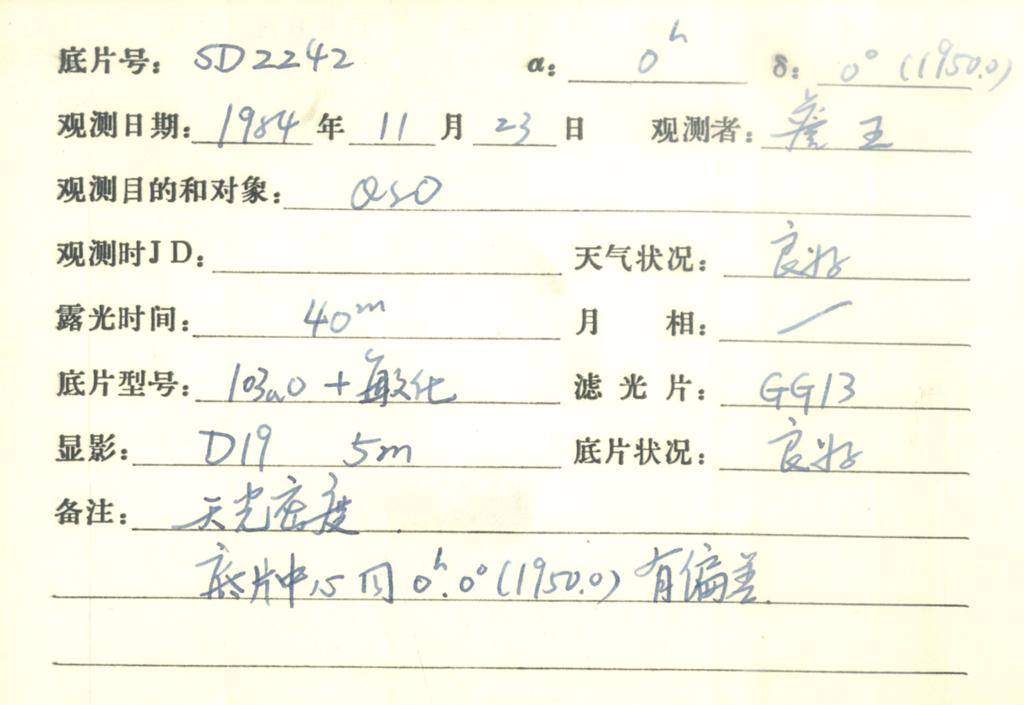 底片号: SD2242 α: 0ʰ δ: 0° (1950.0)
观测日期: 1984 年 11 月 23 日 观测者: 詹 王
观测目的和对象: QSO
观测时JD: 天气状况: 良好
露光时间: 40ᵐ 月 相: /
底片型号: 103aO + 敏化 滤光片: GG13
显影: D19 5m 底片状况: 良好
备注: 天光密度
底片中心同 0ʰ.0°(1950.0) 有偏差.